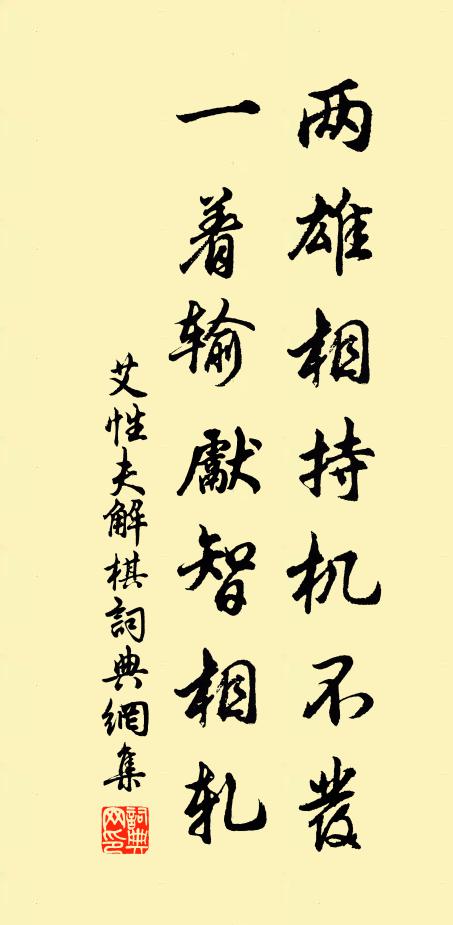 两雄相持机不發
一着输獻智相轧
艾性夫解棋詞典網集
詞典網印